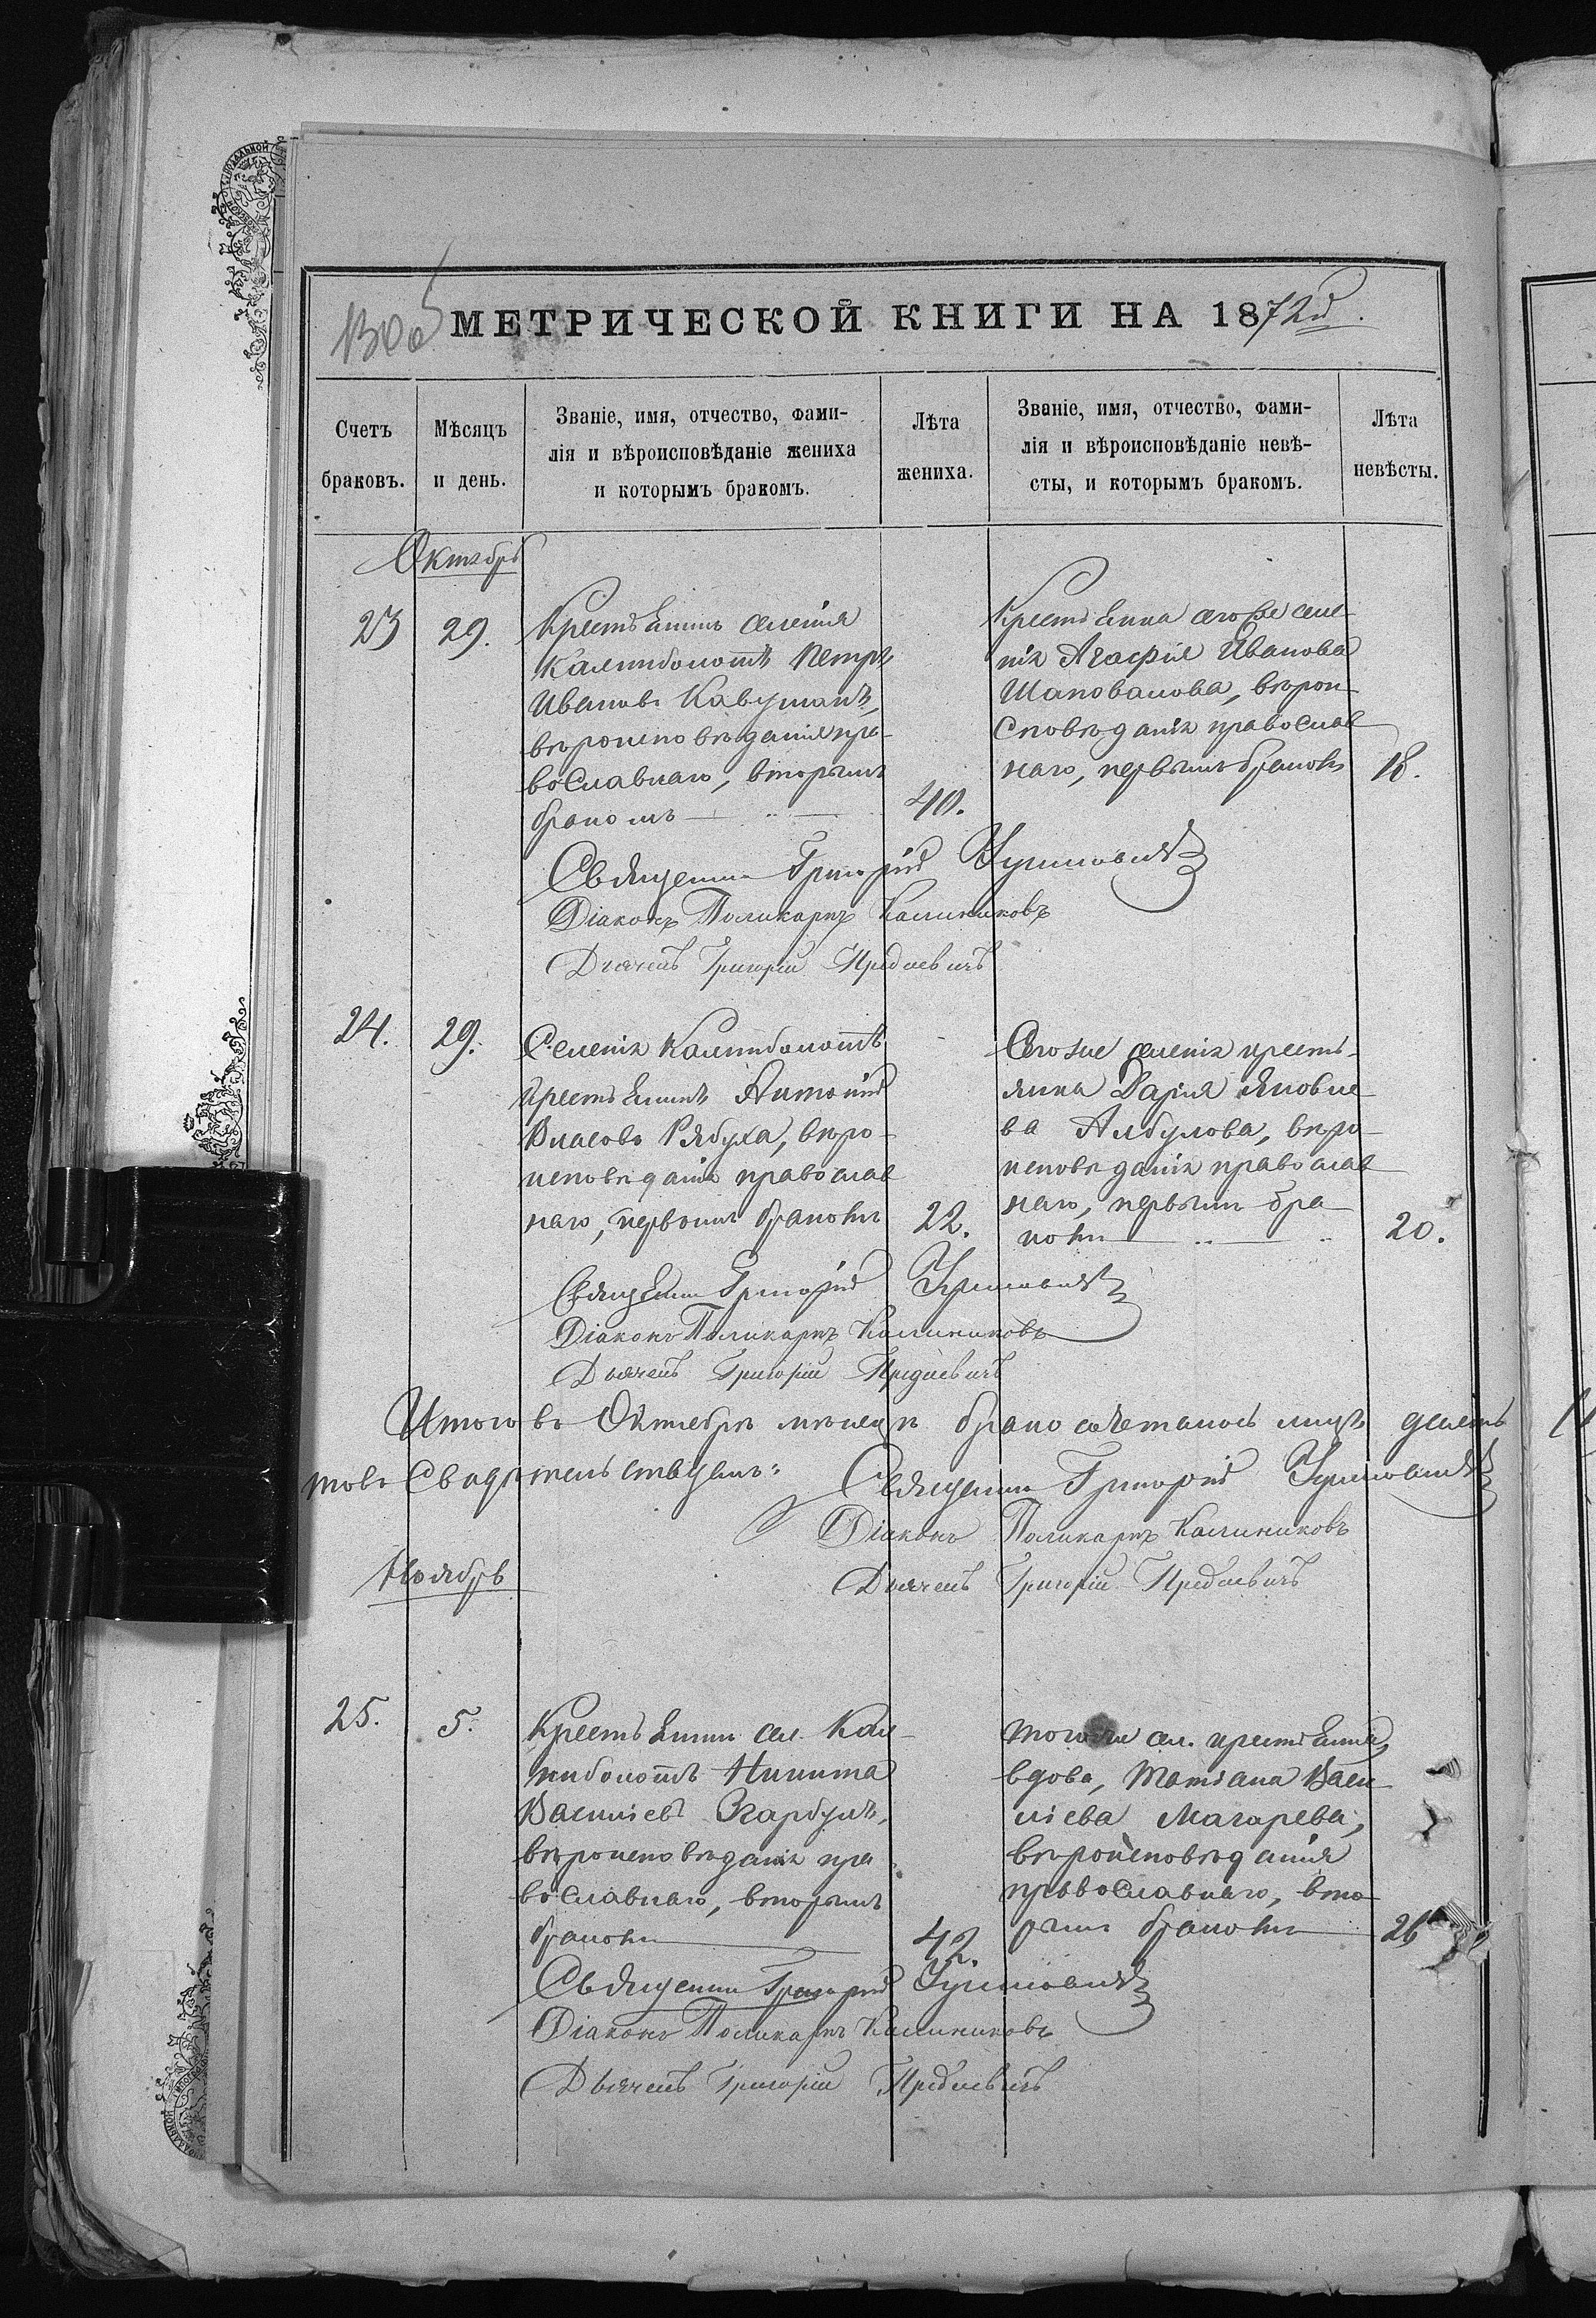 МЕТРИЧЕСКОЙ КНИГИ НА 1872й.
Счетъ браковъ.
Мѣсяцъ и день.
Званіе, имя, отчество, фами-
лія и вѣроисповѣданіе жениха
и которымъ бракомъ.
Лѣта жениха.
Званіе, имя, отчество, фами-
лія и вѣроисповѣданіе невѣ-
сты, и которымъ бракомъ.
Лѣта невѣсты.
Октябрь
23
29.
Крестьянинъ селенія
Калниболотъ Петръ
Ивановъ Кавунъ
вѣроисповѣданія пра-
вославнаго, вторымъ
бракомъ
40.
Крестьянка сегоже селе-
нія Агафія Иванова
Шаповалова, вѣрои-
сповѣданія православ
наго, первымъ бракомъ
18.
Священникъ Григорій
Діаконъ Поликарпъ Калиниковъ
Дьячекъ Григорій
24.
29.
Селенія Калниболотъ
крестьянинъ Антоній
Власовъ Рябуха, вѣро-
исповѣданія православ
наго, первымъ бракомъ
22.
Сегоже селенія кресть-
янка Дарія Яковле
ва Албулова, вѣро-
исповѣданія православ
наго, первымъ бра
комъ
20.
Священникъ Григорій
Діаконъ Поликарпъ Калиниковъ
Дьячекъ Григорій
Итого въ Октябрѣ мѣсяцѣ бракосочеталось лицъ
Свидѣтельствуемъ: Священникъ Григорій
Діаконъ Поликарпъ Калиниковъ
Ноябрь
Дьячекъ Григорій
25.
5.
Крестьянинъ сел. Кал-
ниболотъ Никита
Василіевъ Згарбулъ,
вѣроисповѣданія пра
вославнаго, вторымъ
бракомъ
42.
Тогоже сел. крестьянка,
вдова, Татіана Васи
ліева Магарева,
вѣроисповѣданія
православнаго, вто
рымъ бракомъ
26
Священникъ Григорій
Діаконъ Поликарпъ Калиниковъ
Дьячекъ Григорій